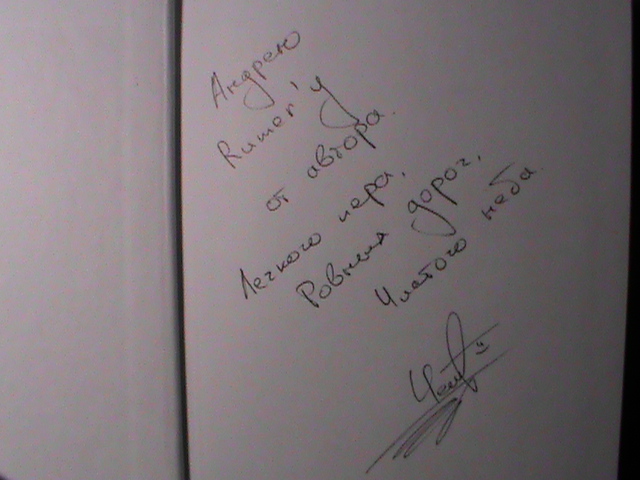 Андрею
Rumer'у
от автора.
Легкого пера,
Ровных дорог,
Чистого неба.